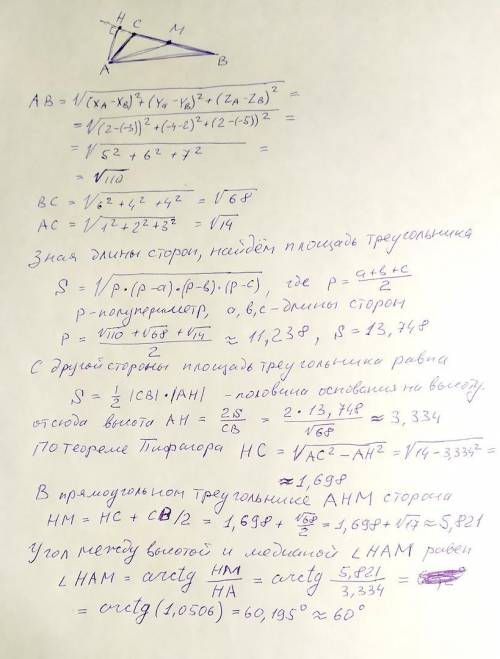 H C M
A B
AB = √((x_A-x_B)²+(y_A-y_B)²+(z_A-z_B)²) =
= √((2-(-3))²+(-4-2)²+(2-(-5))²) =
= √(5²+6²+7²) =
= √110
BC = √(6²+4²+4²) = √68
AC = √(1²+2²+3²) = √14
Зная длины сторон, найдём площадь треугольника
S = √(p·(p-a)·(p-b)·(p-c)), где p = (a+b+c)/2
p-полупериметр, a,b,c-длины сторон
P = (√110+√68+√14)/2 ≈ 11,238, S=13,748
С другой стороны площадь треугольника равна
S = 1/2 |CB|·|AH| -половина основания на высоту.
отсюда высота AH = 2S/CB = 2·13,748/√68 ≈ 3,334
По теореме Пифагора HC = √(AC²-AH²) = √(14-3,334²) =
≈1,698
В прямоугольном треугольнике AHM сторона
HM = HC + CB/2 = 1,698 + √68/2 = 1,698+√17 ≈ 5,821
Угол между высотой и медианой ∠HAM равен
∠HAM = arctg HM/HA = arctg 5,821/3,334 =
= arctg(1,0506) = 60,195° ≈ 60°